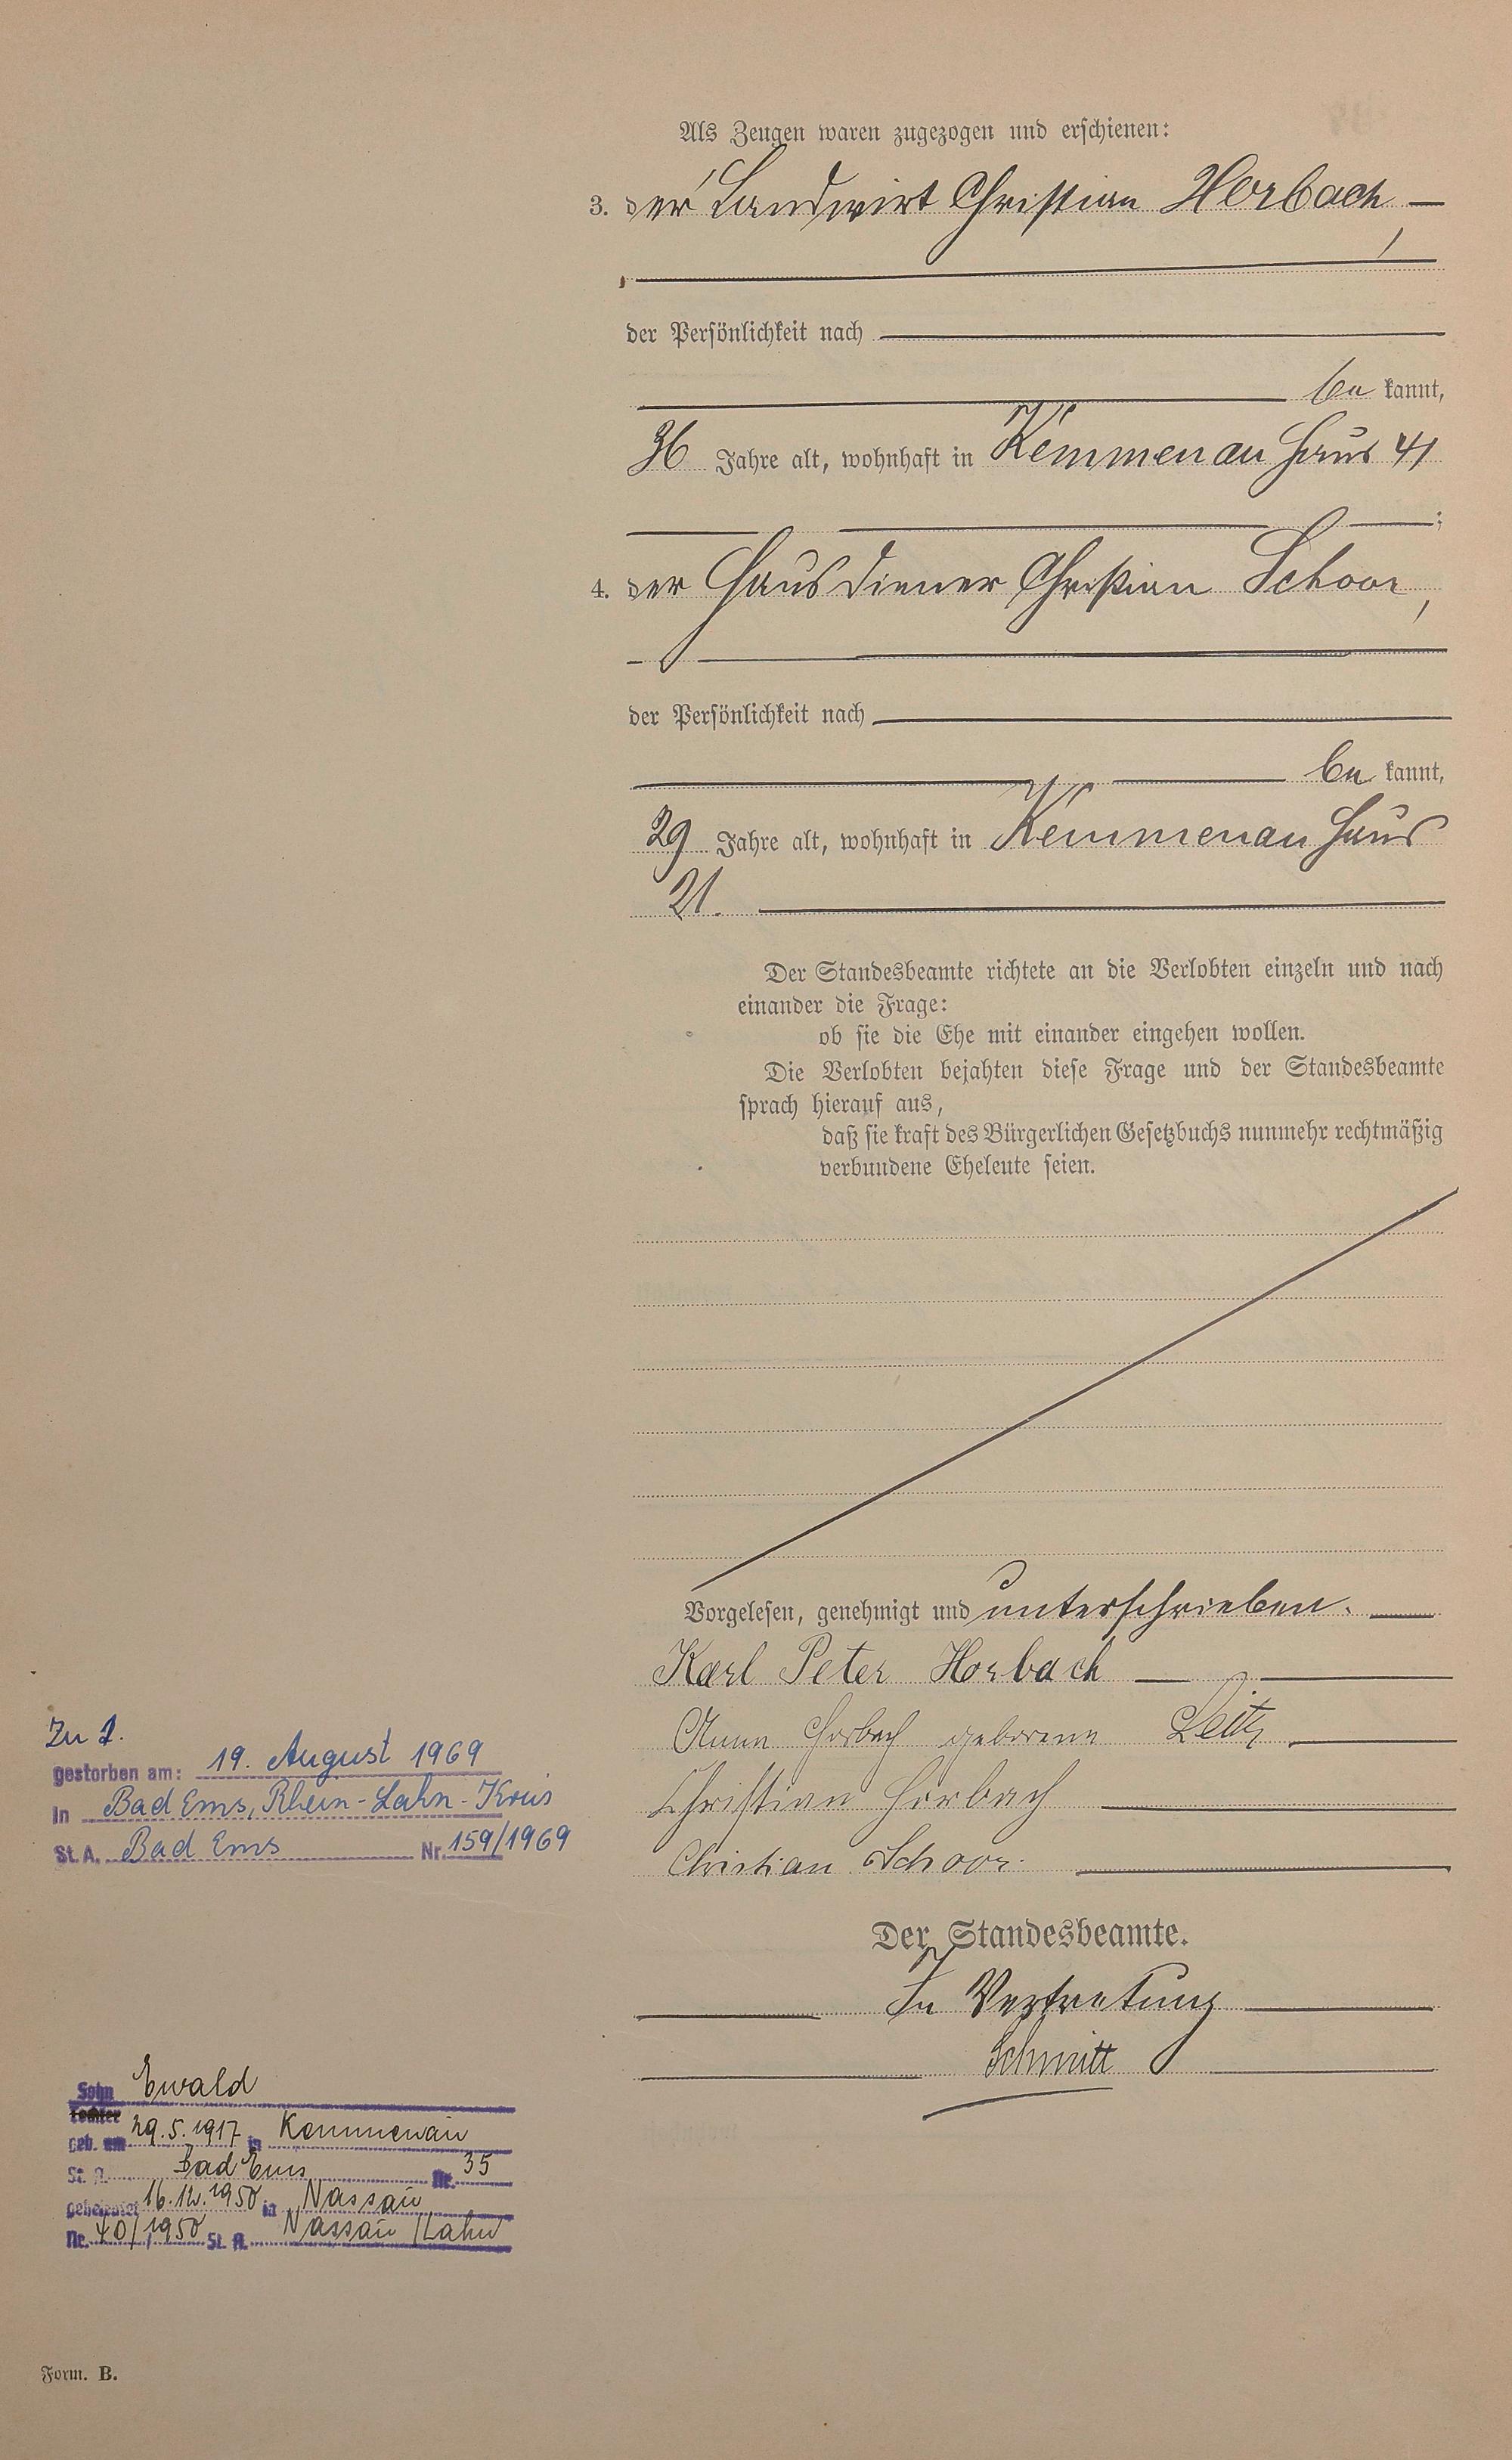 Als Zeugen waren zugezogen und erschienen:
3. der Landwirt Christian Horbach,
der Persönlichkeit nach
be kannt,
36 Jahre alt, wohnhaft in Kemmenau Haus 41
;
4. der Hausdiener Christian Schoor,
der Persönlichkeit nach
be kannt,
29 Jahre alt, wohnhaft in Kemmenau Haus
21.
Der Standesbeamte richtete an die Verlobten einzeln und nach
einander die Frage:
ob sie die Ehe mit einander eingehen wollen.
Die Verlobten bejahten diese Frage und der Standesbeamte
sprach hierauf aus,
daß sie kraft des Bürgerlichen Gesetzbuchs nunmehr rechtmäßig
verbundene Eheleute seien.
Vorgelesen, genehmigt und unterschrieben.
Karl Peter Horbach
Anna Horbach geborene Leitz
Christian Horbach
Christian Schoor.
Der Standesbeamte.
In Vertretung
Schmitt
Zu 2.
gestorben am: 19. August 1969
in Bad Ems, Rhein-Lahn-Kreis
St. A. Bad Ems Nr. 159/1969
Sohn Ewald
Tochter
geb. am 29.5.1917 in Kemmenau
St. A. Bad Ems Nr. 35
geheiratet 16.12.1950 in Nassau
Nr. 40/1950 St. A. Nassau/Lahn
Form. B.